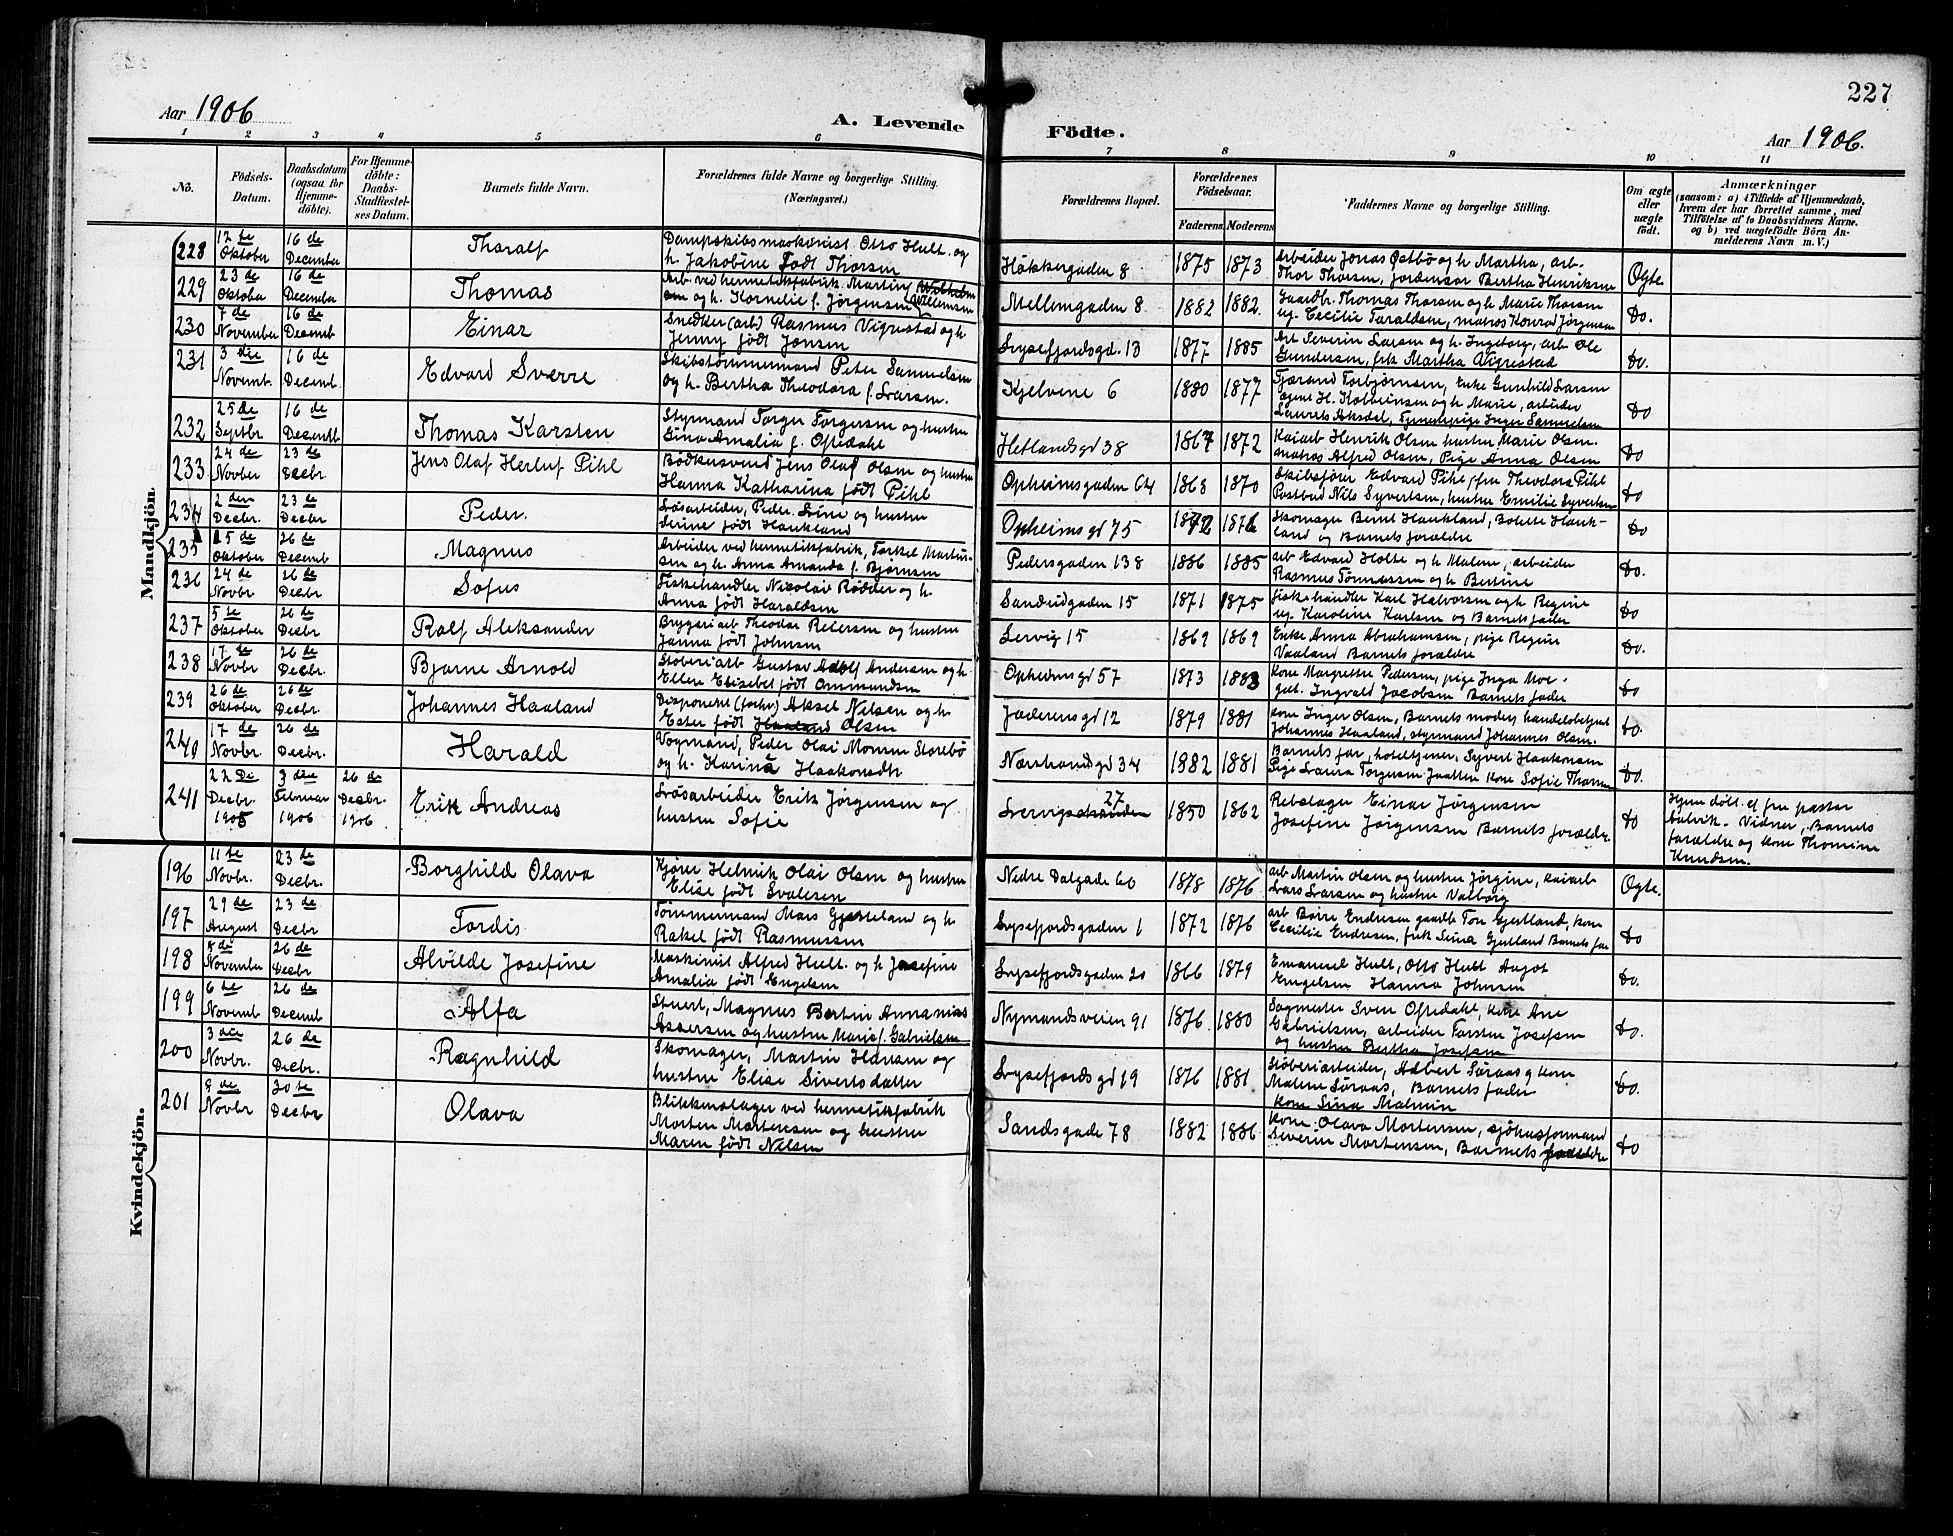 227
Aar 1906
A. Levende Födte.
Aar 1906.
1 2 3 4 5 6 7 8 9 10 11
No.
Födsels-Datum.
Daabsdatum (ogsaa for Hjemme-döbte).
For Hjemme-döbte: Daabs-Stadfæstel-ses Datum.
Barnets fulde Navn.
Forældrenes fulde Navne og borgerlige Stilling. (Næringsvei.)
Forældrenes Bopæl.
Forældrenes Födselsaar.
Faderens Moderens
Faddernes Navne og borgerlige Stilling.
Om ægte eller uægte födt.
Anmærkninger
(saasom: a) i Tilfælde af Hjemmedaab,
hvem der har forrettet samme, med
Tilföielse af to Daabsvidners Navne.
og b) ved uægtefödte Börn An-
melderens Navn m.V.)
Mandkjön.
228 12te Oktober 16de December Tharalf
Dampskibsmaskinist Otto Hult. og
h. Jakobine Född Thorsen
Hökkergaden 8 1875 1873
Arbeider Jonas Østbö og h. Martha, arb.
Thor Thorsen, jordemoor Bertha Henriksen
Ogte.
229 23de Oktober 16de December Thomas
Arb. ved hermetikfabrik. Martin Willumsen
og h. Kornelie f. Jörgensen
Mellemgaden 8 1882 1882.
Gaardbr. Thomas Thorsen og h. Marie Thorsen
ug. Cecilie Taraldsen, matros Konrad Jörgensen
Do.
230 7de November 16de Decemb Einar
Snedker (arb) Rasmus Vigrestad og h.
Jenny född Jonsen
Lysefjordsgd. 13 1877 1885
Arb Severin Larsen og h. Ingeborg, arb Ole
Gundersen, frk Martha Vigrestad
Do.
231 3die Novemb. 16de Decemb. Edvard Sverre
Skibstömmermand Peter Samuelsen
og h. Bertha Theodora f. Larsen.
Kjelvene 6 1880 1877
Tjærand Torbjörnsen, Enke Gunhild Larsen
Laurits Aksdal, Tjenestepige Inger Samuelsen
Do
232 25de Septbr. 16de Decemb Thomas Karsten
Styrmand Torger Torgersen og hustru
Gina Amalia f. Oftedahl
Hetlandsgd 38 1867 1872
Kaiarb Henrik Olsen hustru Marie Olsen.
matros Alfred Olsen, Pige Anna Olsen
Do
233. 24de Novber 23de Decbr Jens Olaf Herluf Pihl
Bödkersvend Jens Olaf Olsen og hustru
Hanna Katharina födt Pihl
Opheimsgaden 64 1868 1870
Skibsförer Edvard Pihl, fra Theodora Pihl
Postbud Nils Syvertsen, hustru Emilie Syvertsen
Do
234 2den Decbr. 23de Decbr Peder.
Lösarbeider, Peder. Line og hustru
Serine födt Haukland
Opheimsgd 75 1872 1876
Skomager Bernt Haukland, Bolette Hauk-
land og Barnets forældre
Do
235 15de Oktober 26de Decemb Magnus
Arbeider ved hermetikfabrik, Torkel Martin-
sen og h. Anna Amanda f. Bjørnsen
Pedersgaden 138 1886 1885
arb Edvard Holte og h Malene, arbeider
Rasmus Tönnessen og h. Bertine
Do.
236 24de Novbr 26de Decbr Sofus
Fiskehandler Nicolai Rödder og h.
Anna födt Haraldsen
Sandvigaden 15 1871 1875
Fiskehandler Karl Halvorsen og h. Regine
ug. Karoline Karlsen og Barnets fader
Do
237 5te Oktober 26de Decbr Rolf Aleksander
Bryggeriarb Theodor Petersen og hustru
Janna födt Johnsen
Lervig 15 1869 1869
Enke Anna Abrahamsen, pige Regine
Vaaland Barnets forældre
Do.
238 17de Novbr 26de Decbr. Bjarne Arnold
Stöberiarb Gustav Adolf Andersen og h.
Ellen Elisabet födt Ommundsen
Opheimsgd 57 1873 1883
Kone Margrethe Pedersen, pige Inga Moe-
gut. Ingvald Jacobsen Barnets fader
Do
239 26de Oktober 26de Decbr. Johannes Haaland
Disponent (forhv) Aksel Nilsen og h.
Ester födt Haaland Olsen
Jæderensgd 12 1879 1881
Kone Inger Olsen, Barnets moder, handelsbetjent
Johannes Haaland, styrmand Johannes Olsen.
Do.
240 17de Novbr 26de Decbr. Harald
Vogmand, Peder Olai Monsen Storebö
og h. Karina Haakonsdtr
Nærstrandsgd 34 1882 1881
Barnets far, hoteltjener, Syvert Haakonsen
Pige Laura Torgersen Jaatten kone Sofie Thorsen
Do.
241 22De Decbr. 1905 3die Februar 1906 26de Decbr. 1906 Erik Andreas
Lösarbeider Erik Jörgensen og
hustru Sofie
Lervigsstranden 27 1850 1862
Rebslager Einar Jörgensen
Josefine Jörgensen Barnets forældre.
Do
Hjem döbt. af frue pastor
Aalvik. Vidner, Barnets
forældre og kone Thomine
Knudsen.
Kvindekjön.
196 11te Novbr. 23de Decbr. Borghild Olava
Kjörer Helmik Olai Olsen og hustru
Elise födt Svalesen
Nedre Dalgade 60 1878 1876
arb Martin Olsen og hustru Jörgine, kaiarb
Lars Larsen og hustru Valborg
Ogte.
197 29de August 23de Decbr Tordis
Tömmermand Mars Gjesteland og h.
Rakel födt Rasmussen
Lysefjordsgaden 1 1872 1876
arb Börre Endresen gaardb Ton Gjestland, kone
Cecilie Endresen, frk Sina Gjestland Barnets far
Do
198 8de November 26de Decbr Alvilde Josefine
Maskinist Alfred Hult. og h Josefine
Amalia födt Engelsen
Lysefjordsgaden 20 1866 1879
Emanuel Hult, Otto Hult Aagot
Engelsen Hanna Johnsen
Do.
199 6te Novemb 26de Decemb Alfa
Stuert, Magnus Bertin Annanias
Assersen og hustru Marie f. Gabrielsen
Nymandsveien 91 1876. 1880
Sagmester Sven Oftedahl, kone Ane
Gabrielsen, arbeider Torsten Josefsen
og hustru Bertha Josefsen
Do.
200 3die Novbr. 26de Decbr. Ragnhild
Skomager, Martin Hansen og
hustru Elise Sivertsdatter
Lysefjordsgd 19 1876 1881
Stöberiarbeider, Adbert Söraas g kone
Malene Söraas, Barnets fader
kone Sina Malmin
Do.
201 9de Novbr 30te Decbr Olava
Blikkenslager ved hermetikfabrik
Morten Mortensen og hustru
Maren födt Nelsen
Sandsgade 78 1882 1886
Kone Olava Mortensen, sjöhusformand
Severin Mortensen, Barnets forældre
Do